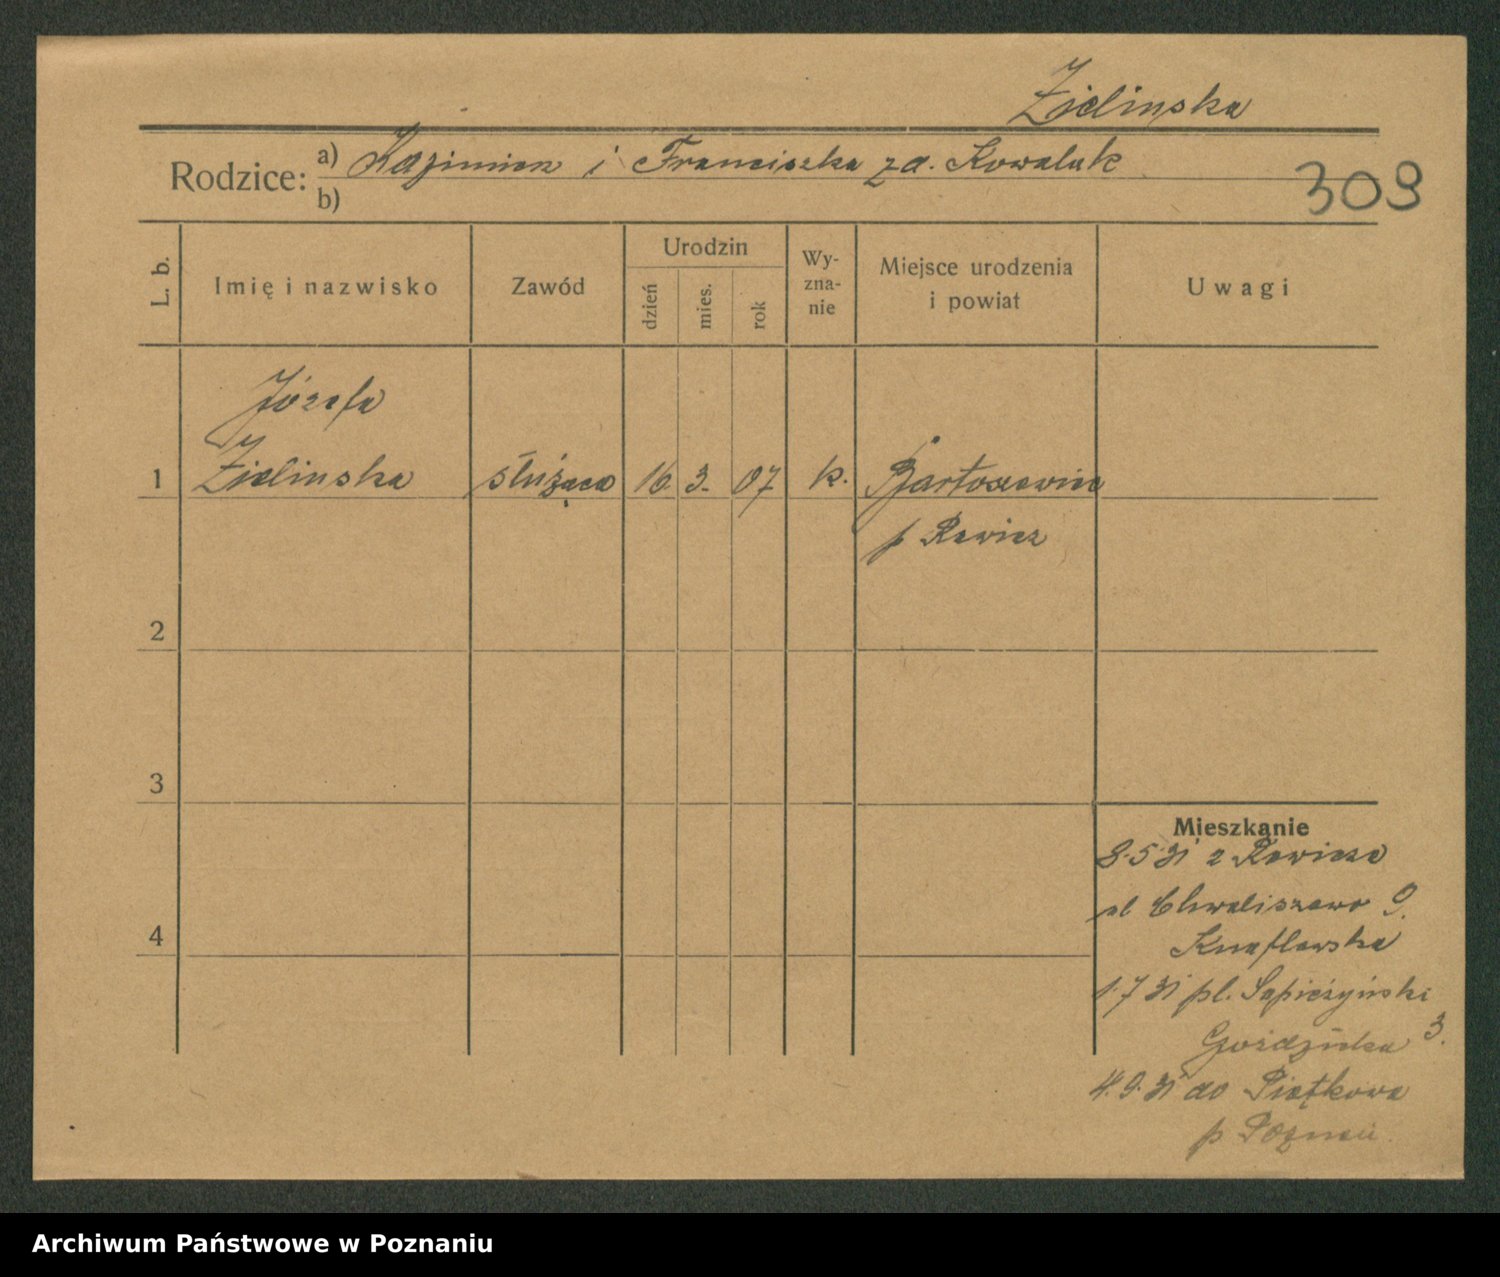 Zielinska
Rodzice: a) Kazimierz i Franciszka zd. Kowalak
b)
309
L. b.
Imię i nazwisko
Zawód
Urodzin
dzień
mies.
rok
Wy-
zna-
nie
Miejsce urodzenia
i powiat
Uwagi
Józefa
1 Zielinska służąca 16. 3. 07 k. Bartoszewice
p Rawicz
2
3
4
Mieszkanie
8.5.31 z Rawicza
ul Chwaliszewo 9.
Knaflewska
1.7.31 pl. Sapieżyński
3.
4.9.31 do Piątkowa
p Poznań
Archiwum Państwowe w Poznaniu